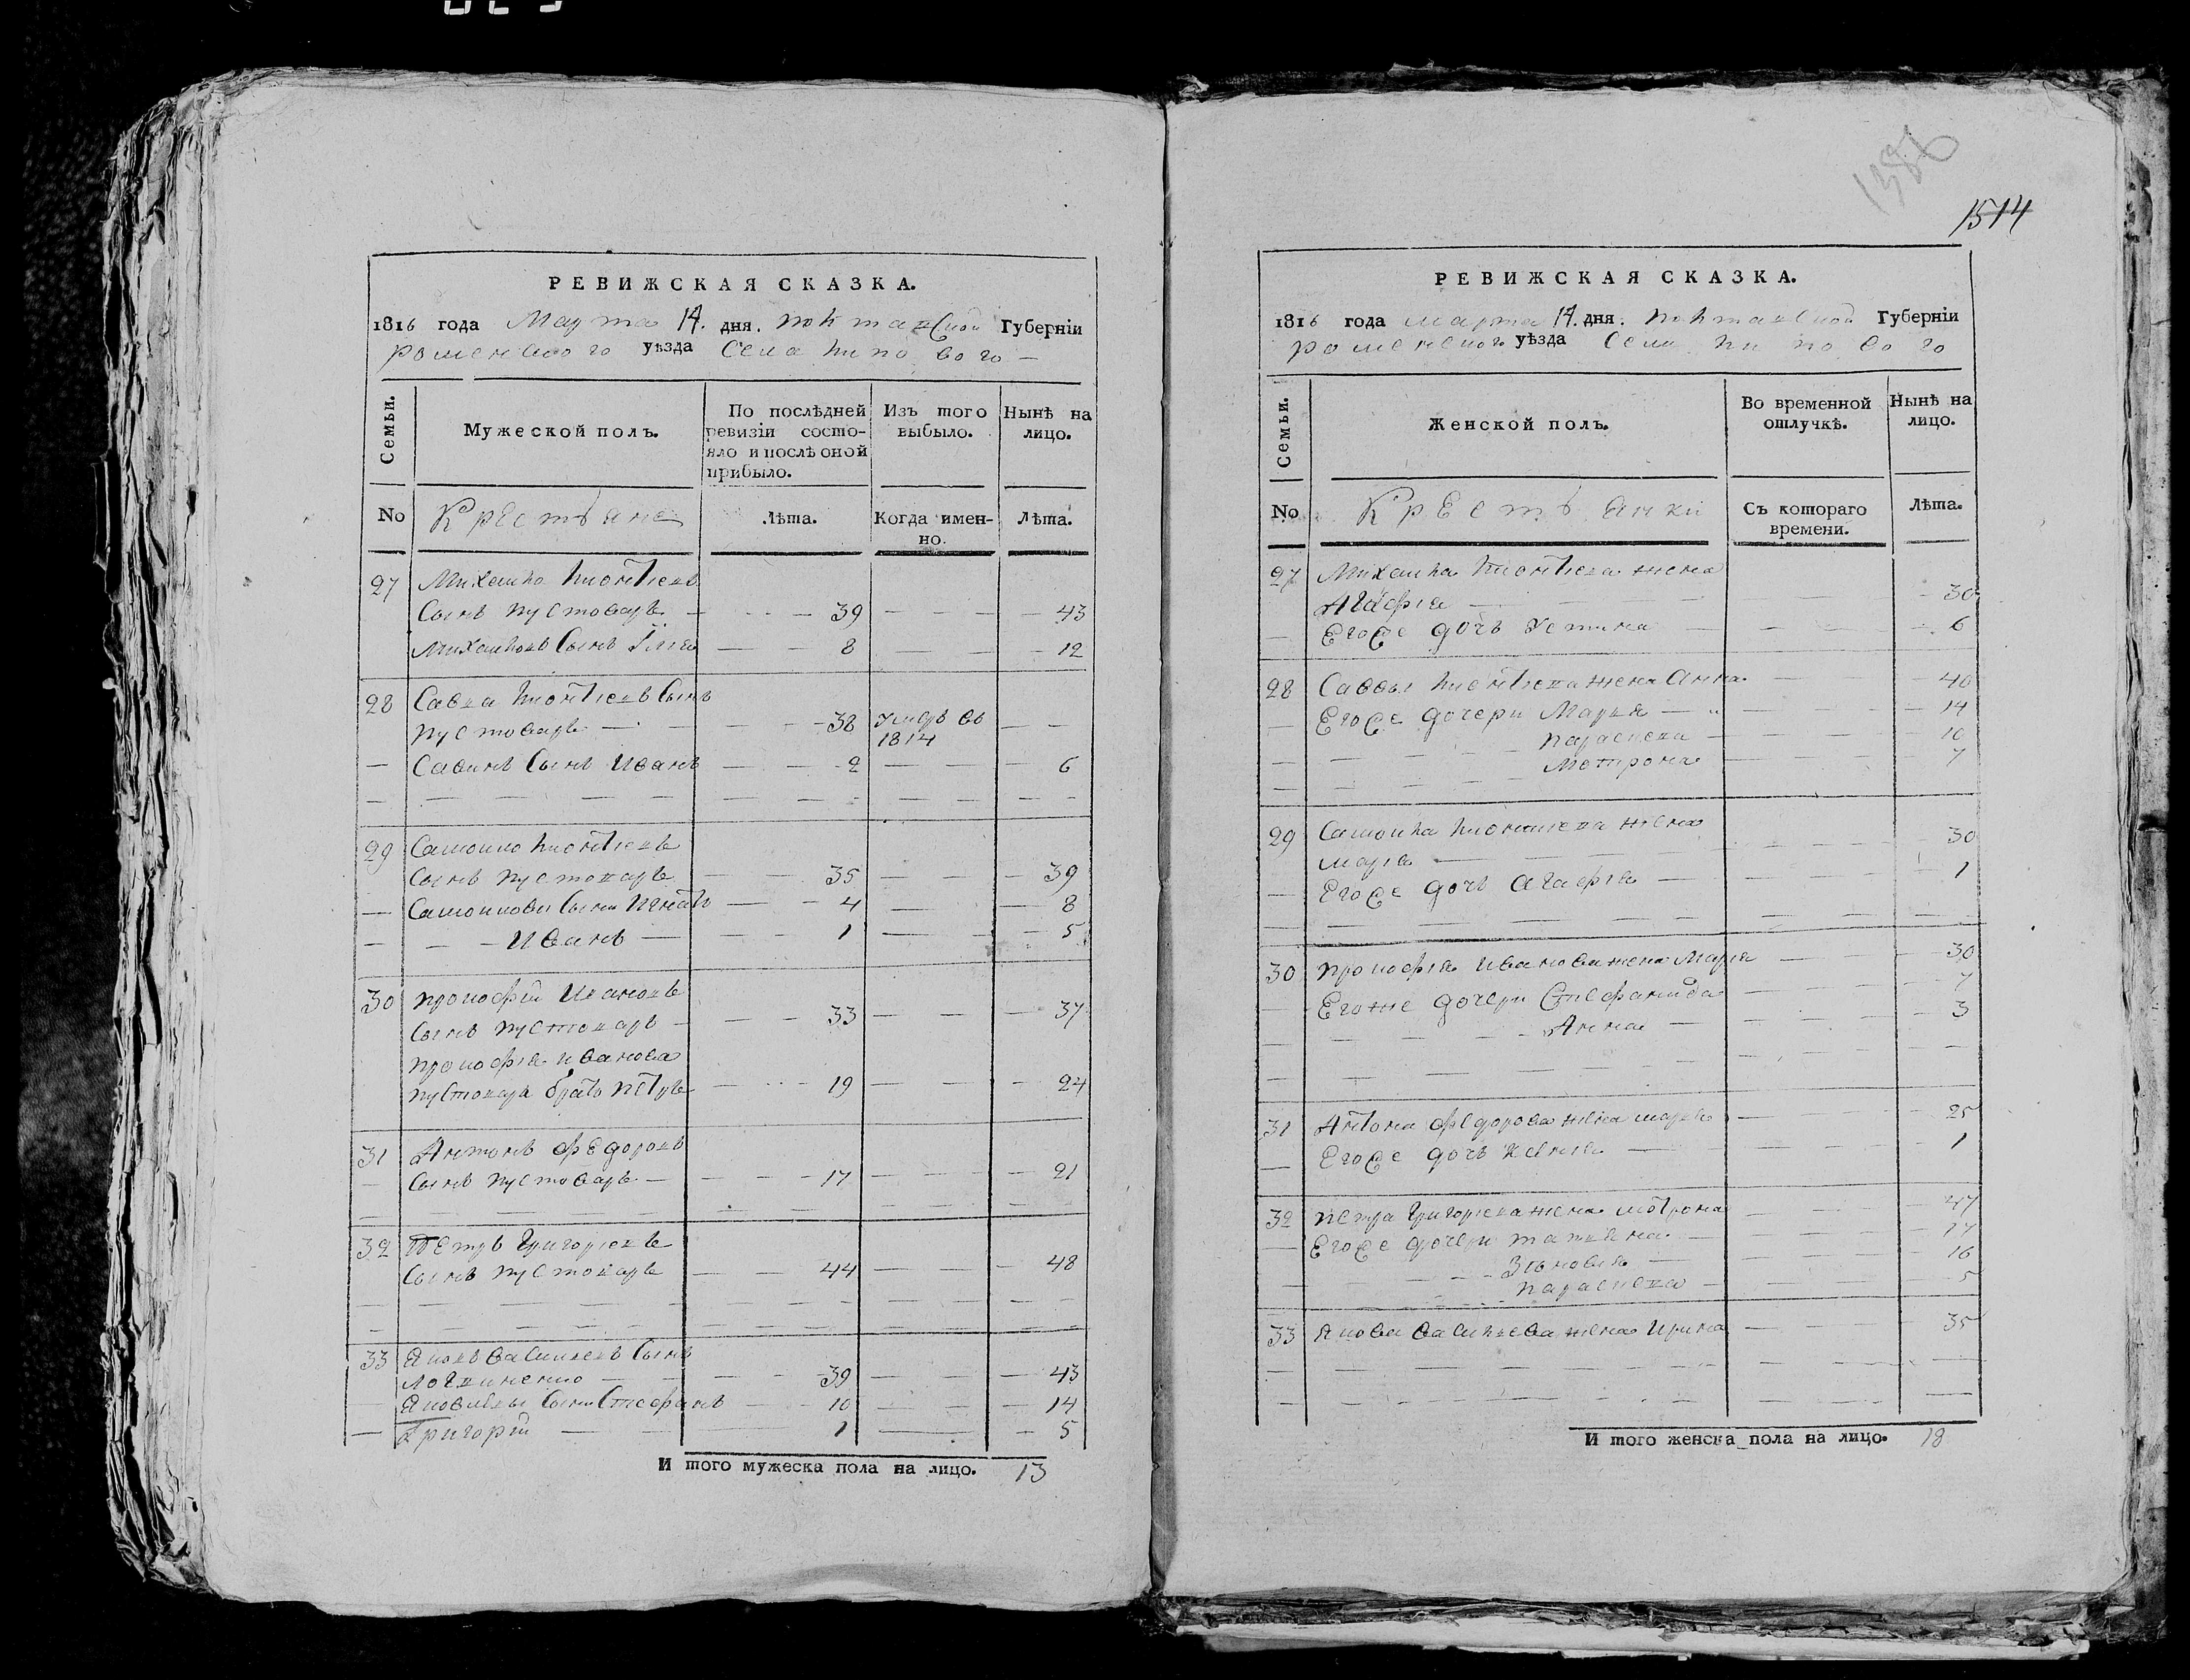 1514
РЕВИЖСКАЯ СКАЗКА.
1816 года Марта 14. дня. Полтавской Губерніи
роменского уѣзда Села липового
Семьи.
Мужеской полъ.
По послѣдней ревизіи состояло и послѣ оной прибыло.
Изъ того выбыло.
Нынѣ на лицо.
No Крестьяне Лѣта. Когда именно. Лѣта.
27 Михаила
Сынъ пустоваръ 39 43
Михаиловъ Сынъ 8 12
28 Савка Сынъ
пустоваръ 38 умеръ въ 1814
Савинъ Сынъ Иванъ 2 6
29 Самоило
Сынъ пустоваръ 35 39
Самоиловы Сыны Игнатъ 4 8
Иванъ 1 5
30 прокофій Ивановъ
Сынъ пустоваръ 33 37
прокофія иванова
пустовара братъ петръ 19 24
31 Антонъ федоровъ
Сынъ пустоваръ 17 21
32 Петръ григоріевъ
Сынъ пустоваръ 44 48
33 Яковъ василіевъ Сынъ
логвиненко 39 43
Яковлевы Сыны Стефанъ 10 14
Григорій 1 5
И того мужеска пола на лицо. 13
РЕВИЖСКАЯ СКАЗКА.
1816 года марта 14. дня. полтавской Губерніи
роменского уѣзда Села липового
Семьи.
Женской полъ.
Во временной отлучкѣ.
Нынѣ на лицо.
No Крестьянки Съ котораго времени. Лѣта.
27 Михаила жена
Агафія 30
Егоже дочь Устина 6
28 Саввы жена Анна 40
Егоже дочери Марья 14
параскева 10
Мотрона 7
29 Самоила жена
марія 30
Егоже дочь агафія 1
30 прокофія иванова жена Марія 30
Егоже дочери Стефанида 7
Анна 3
31 Антона федорова жена марья 25
Егоже дочь 1
32 петра григоріева жена мотрона 47
Егоже дочери татьяна 17
Зѣновія 16
параскева 5
33 Якова василіева жена Ирина 35
И того женска пола на лицо. 18